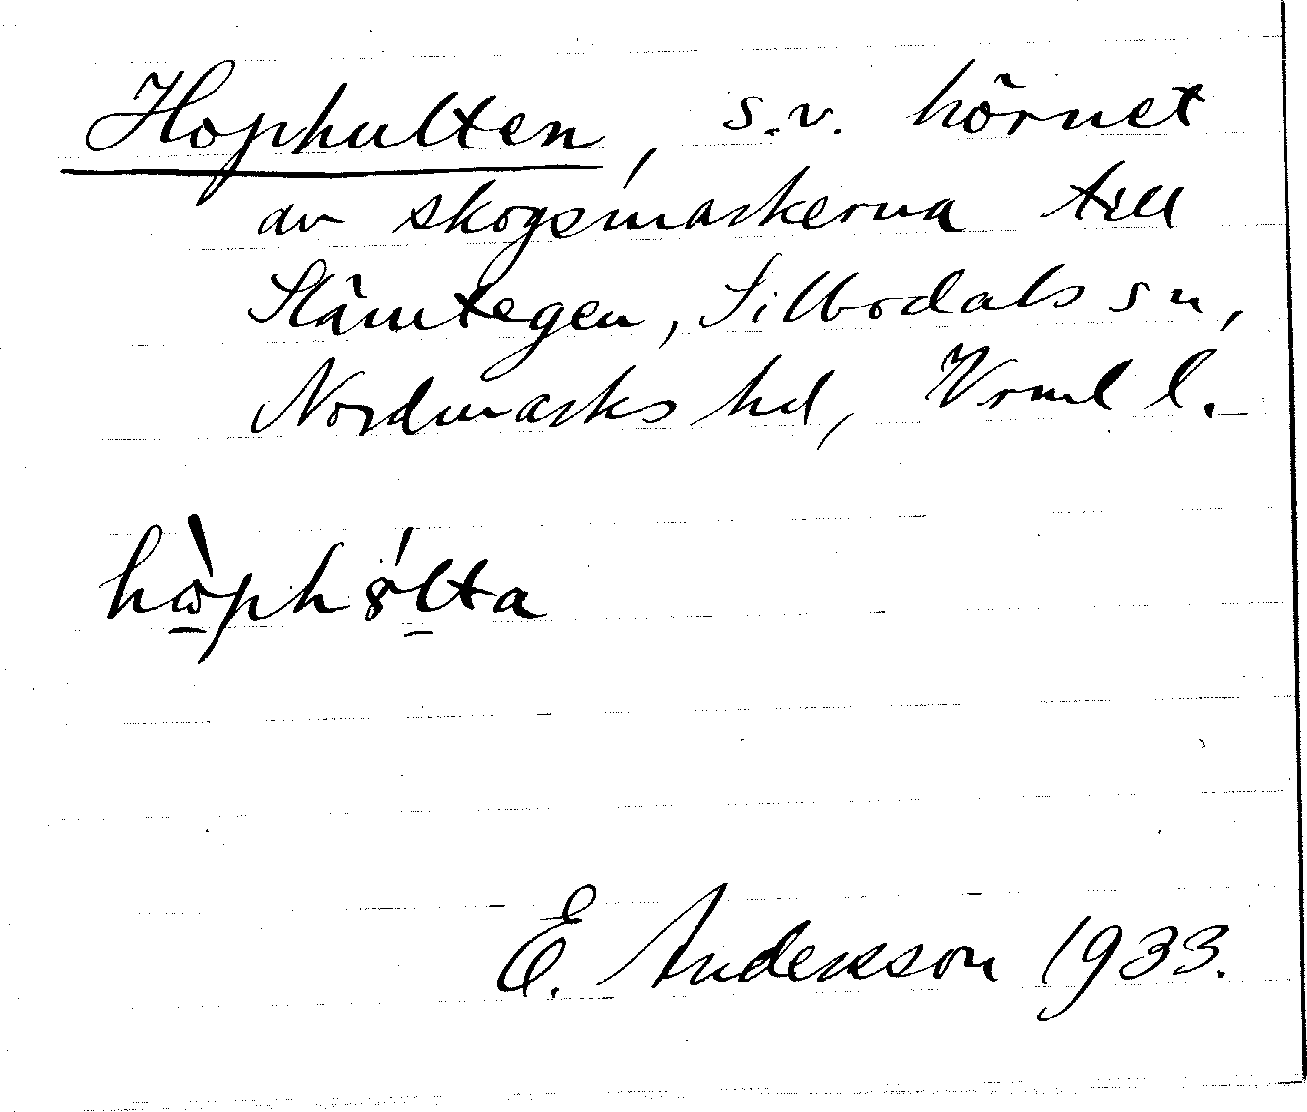 Hophulten, s.v. hörnet
av skogsmarkerna till
Slämtegen, Sillbodals sn,
Nordmarks hd, Vrml l.
hὼphȣ́lta
E. Andersson 1933.